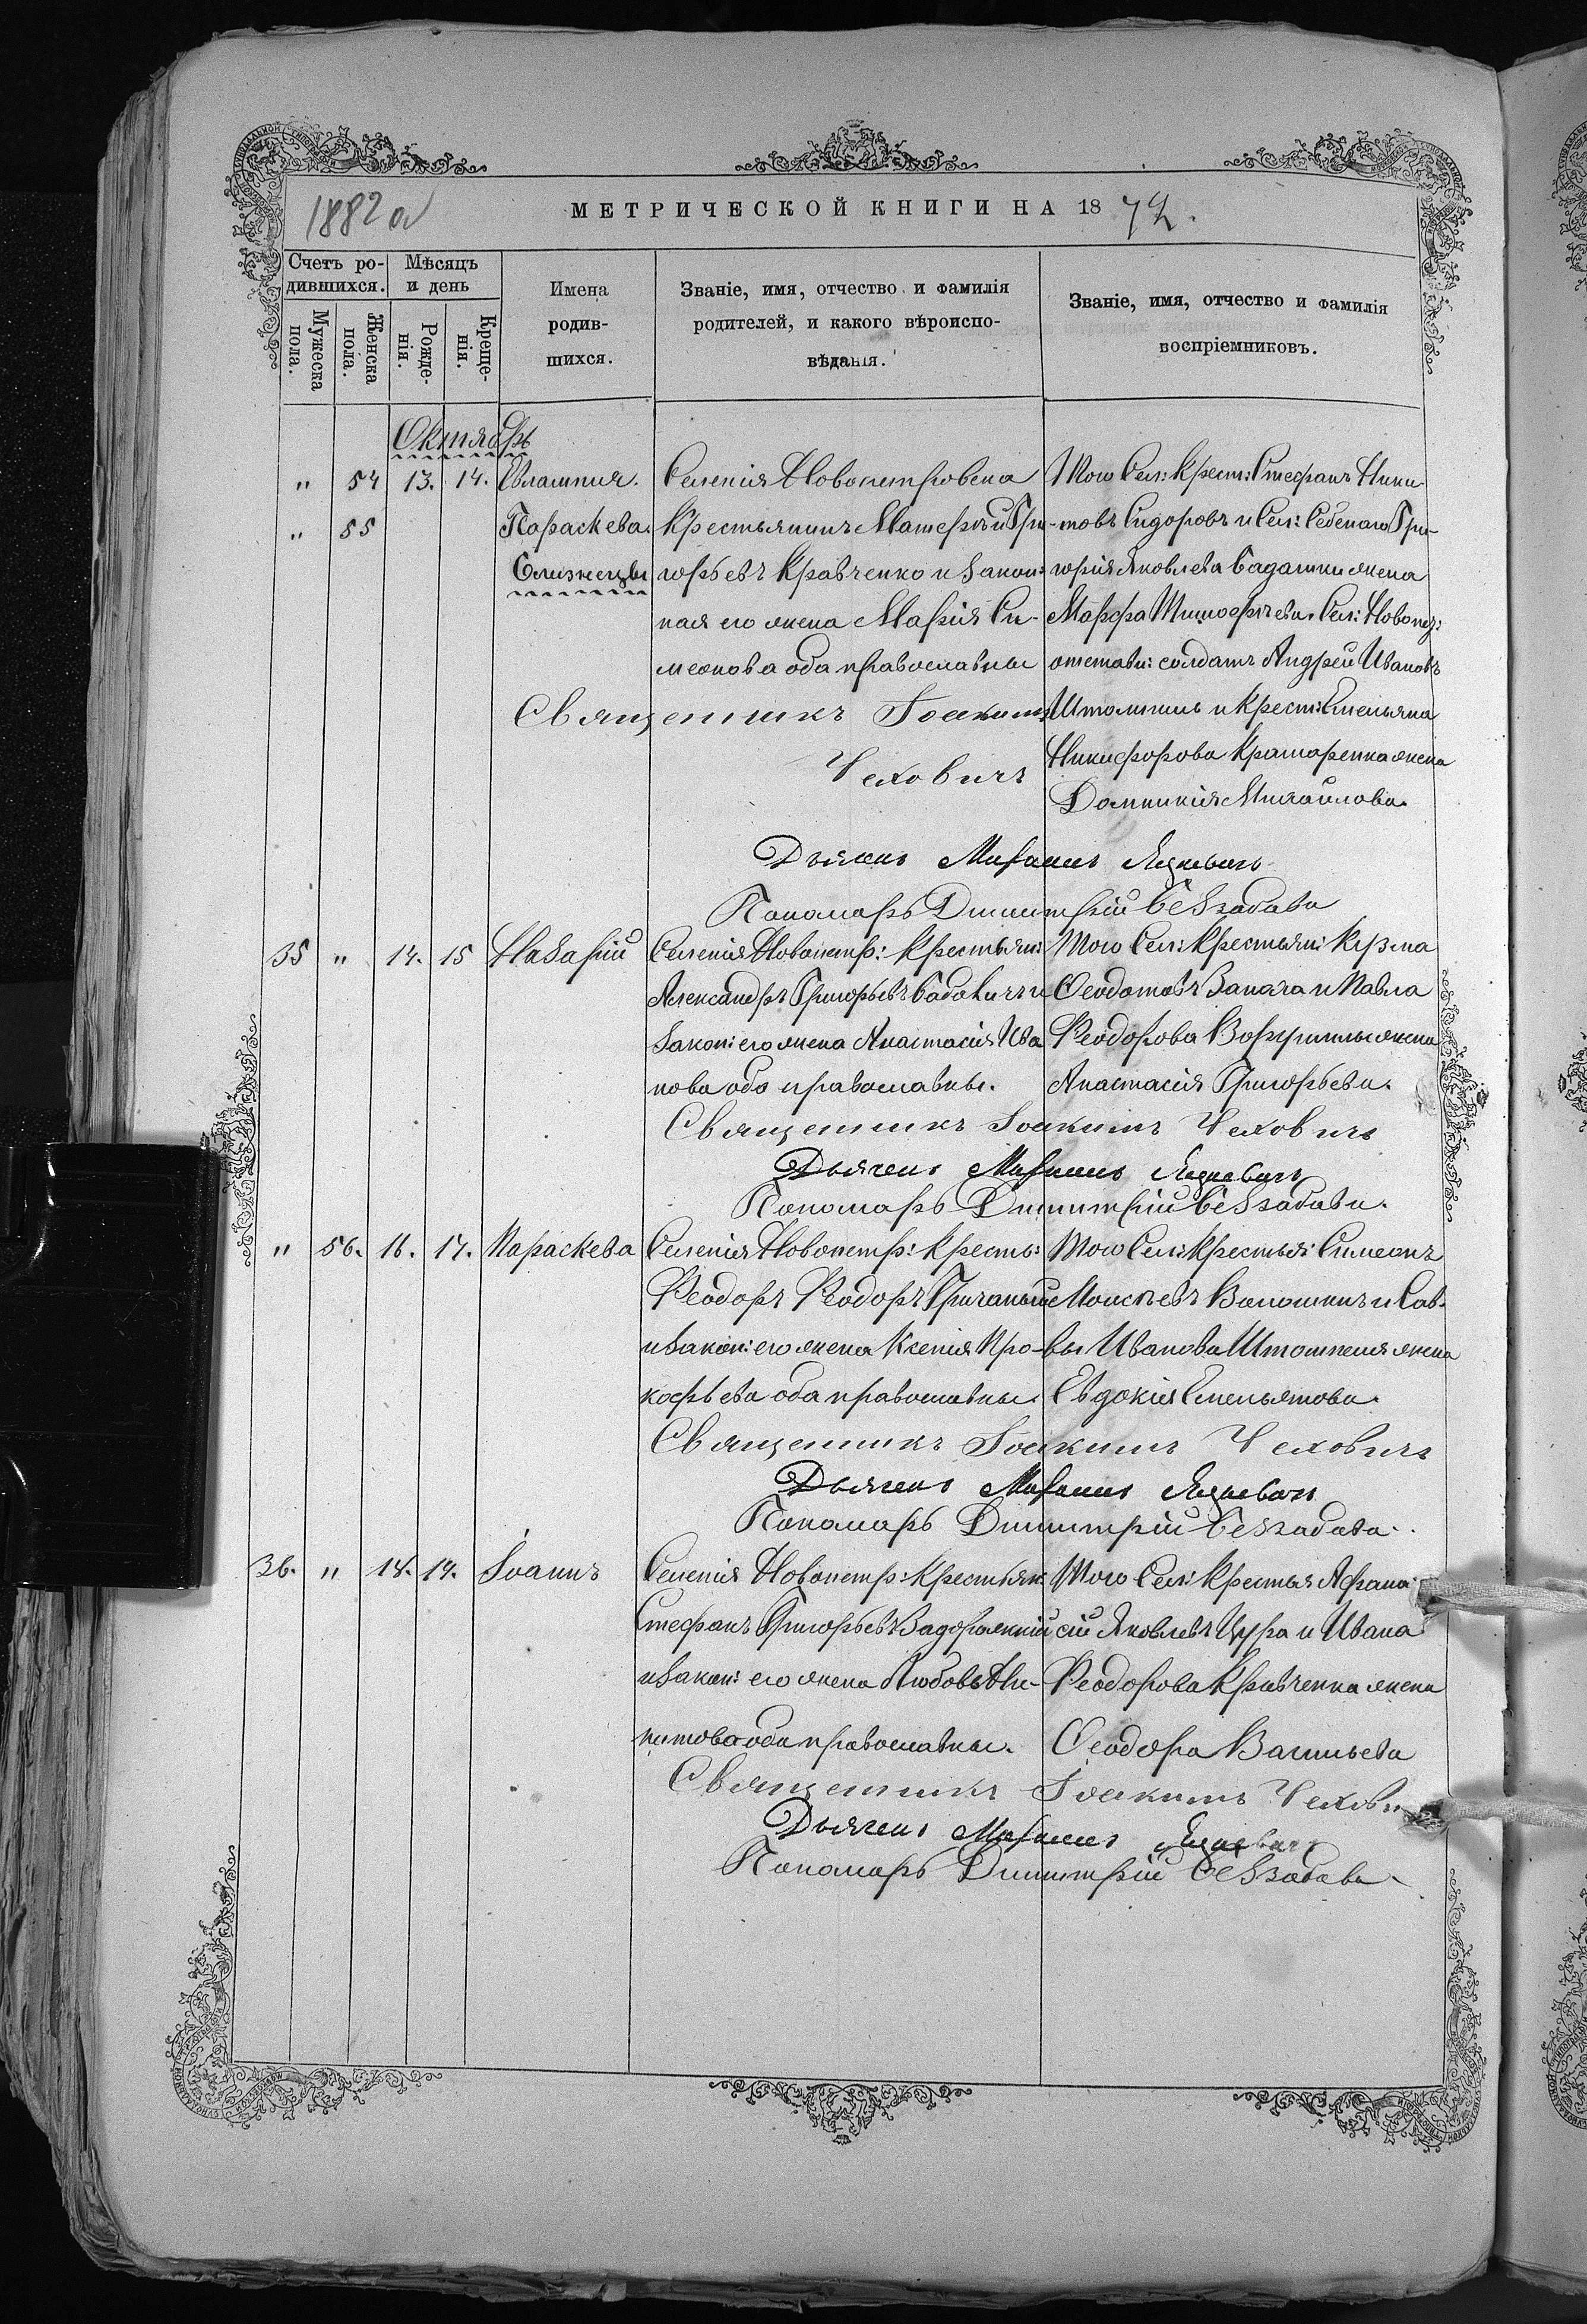 1882 о
МЕТРИЧЕСКОЙ КНИГИ НА 18 72.
Счетъ ро-
дившихся.
Мужеска
пола.
Женска
пола.
Мѣсяцъ
и день
Рожде-
нія.
Креще-
нія.
Имена
родив-
шихся.
Званіе, имя, отчество и фамилія
родителей, и какого вѣроиспо-
вѣданія.
Званіе, имя, отчество и фамилія
воспріемниковъ.
Октябрь
" 54 13. 14. Евлампія.
" 55 Параскева.
Близнецы
Селенія Новопетровска
Крестьянинъ Матѳей Гри-
горьевъ Кравченко и закон:
ная его жена Марія Си-
меонова оба православны
Того Сел: Крест: Стефанъ Ники-
товъ Сидоровъ и Сел: Гри-
горія Яковлева жена
Марфа Тимофѣева. Сел: Новопет:
отставн: солдатъ Андрей Ивановъ
и Крест: Емельяна
Никифорова Крамаренка жена
Домникія Михайлова.
Священникъ Іоакимъ
Чеховичъ
Дьячекъ
Пономарь Димитрій Беззабава
35 " 14. 15 Назарій
Селенія Новопетр: Крестьян:
Александръ Григорьевъ Бабовичъ и
закон: его жена Анастасія Ива
нова оба православны.
Того Сел: Крестьян: Кузма
Ѳеодотовъ и Павла
Феодорова жена
Анастасія Григорьева.
Священникъ Іоакимъ Чеховичъ
Дьячекъ
Пономарь Димитрій Беззабава.
" 56. 16. 17. Параскева
Селенія Новопетр: Кресть:
Феодоръ Феодоръ
и закон: его жена Ксенія Про-
кофьева оба православны.
Того Сел: Крестья: Симеонъ
Моисѣевъ Волошинъ и Сав-
вы Иванова жена
Евдокія Емельянова.
Священникъ Іоакимъ Чеховичъ
Дьячекъ
Пономарь Димитрій Беззабава.
36. " 18. 19. Іоаннъ
Селенія Новопетр: Крестьян:
Стефанъ Григорьевъ Задорожній
и закон: его жена Любовь Ни-
китова оба православны.
Того Сел: Крестья Афана-
сій Яковлевъ Цура и Ивана
Феодорова Кравченка жена
Ѳеодора Васильева
Священникъ Іоакимъ Чехови
Дьячекъ
Пономарь Димитрій Беззабава.